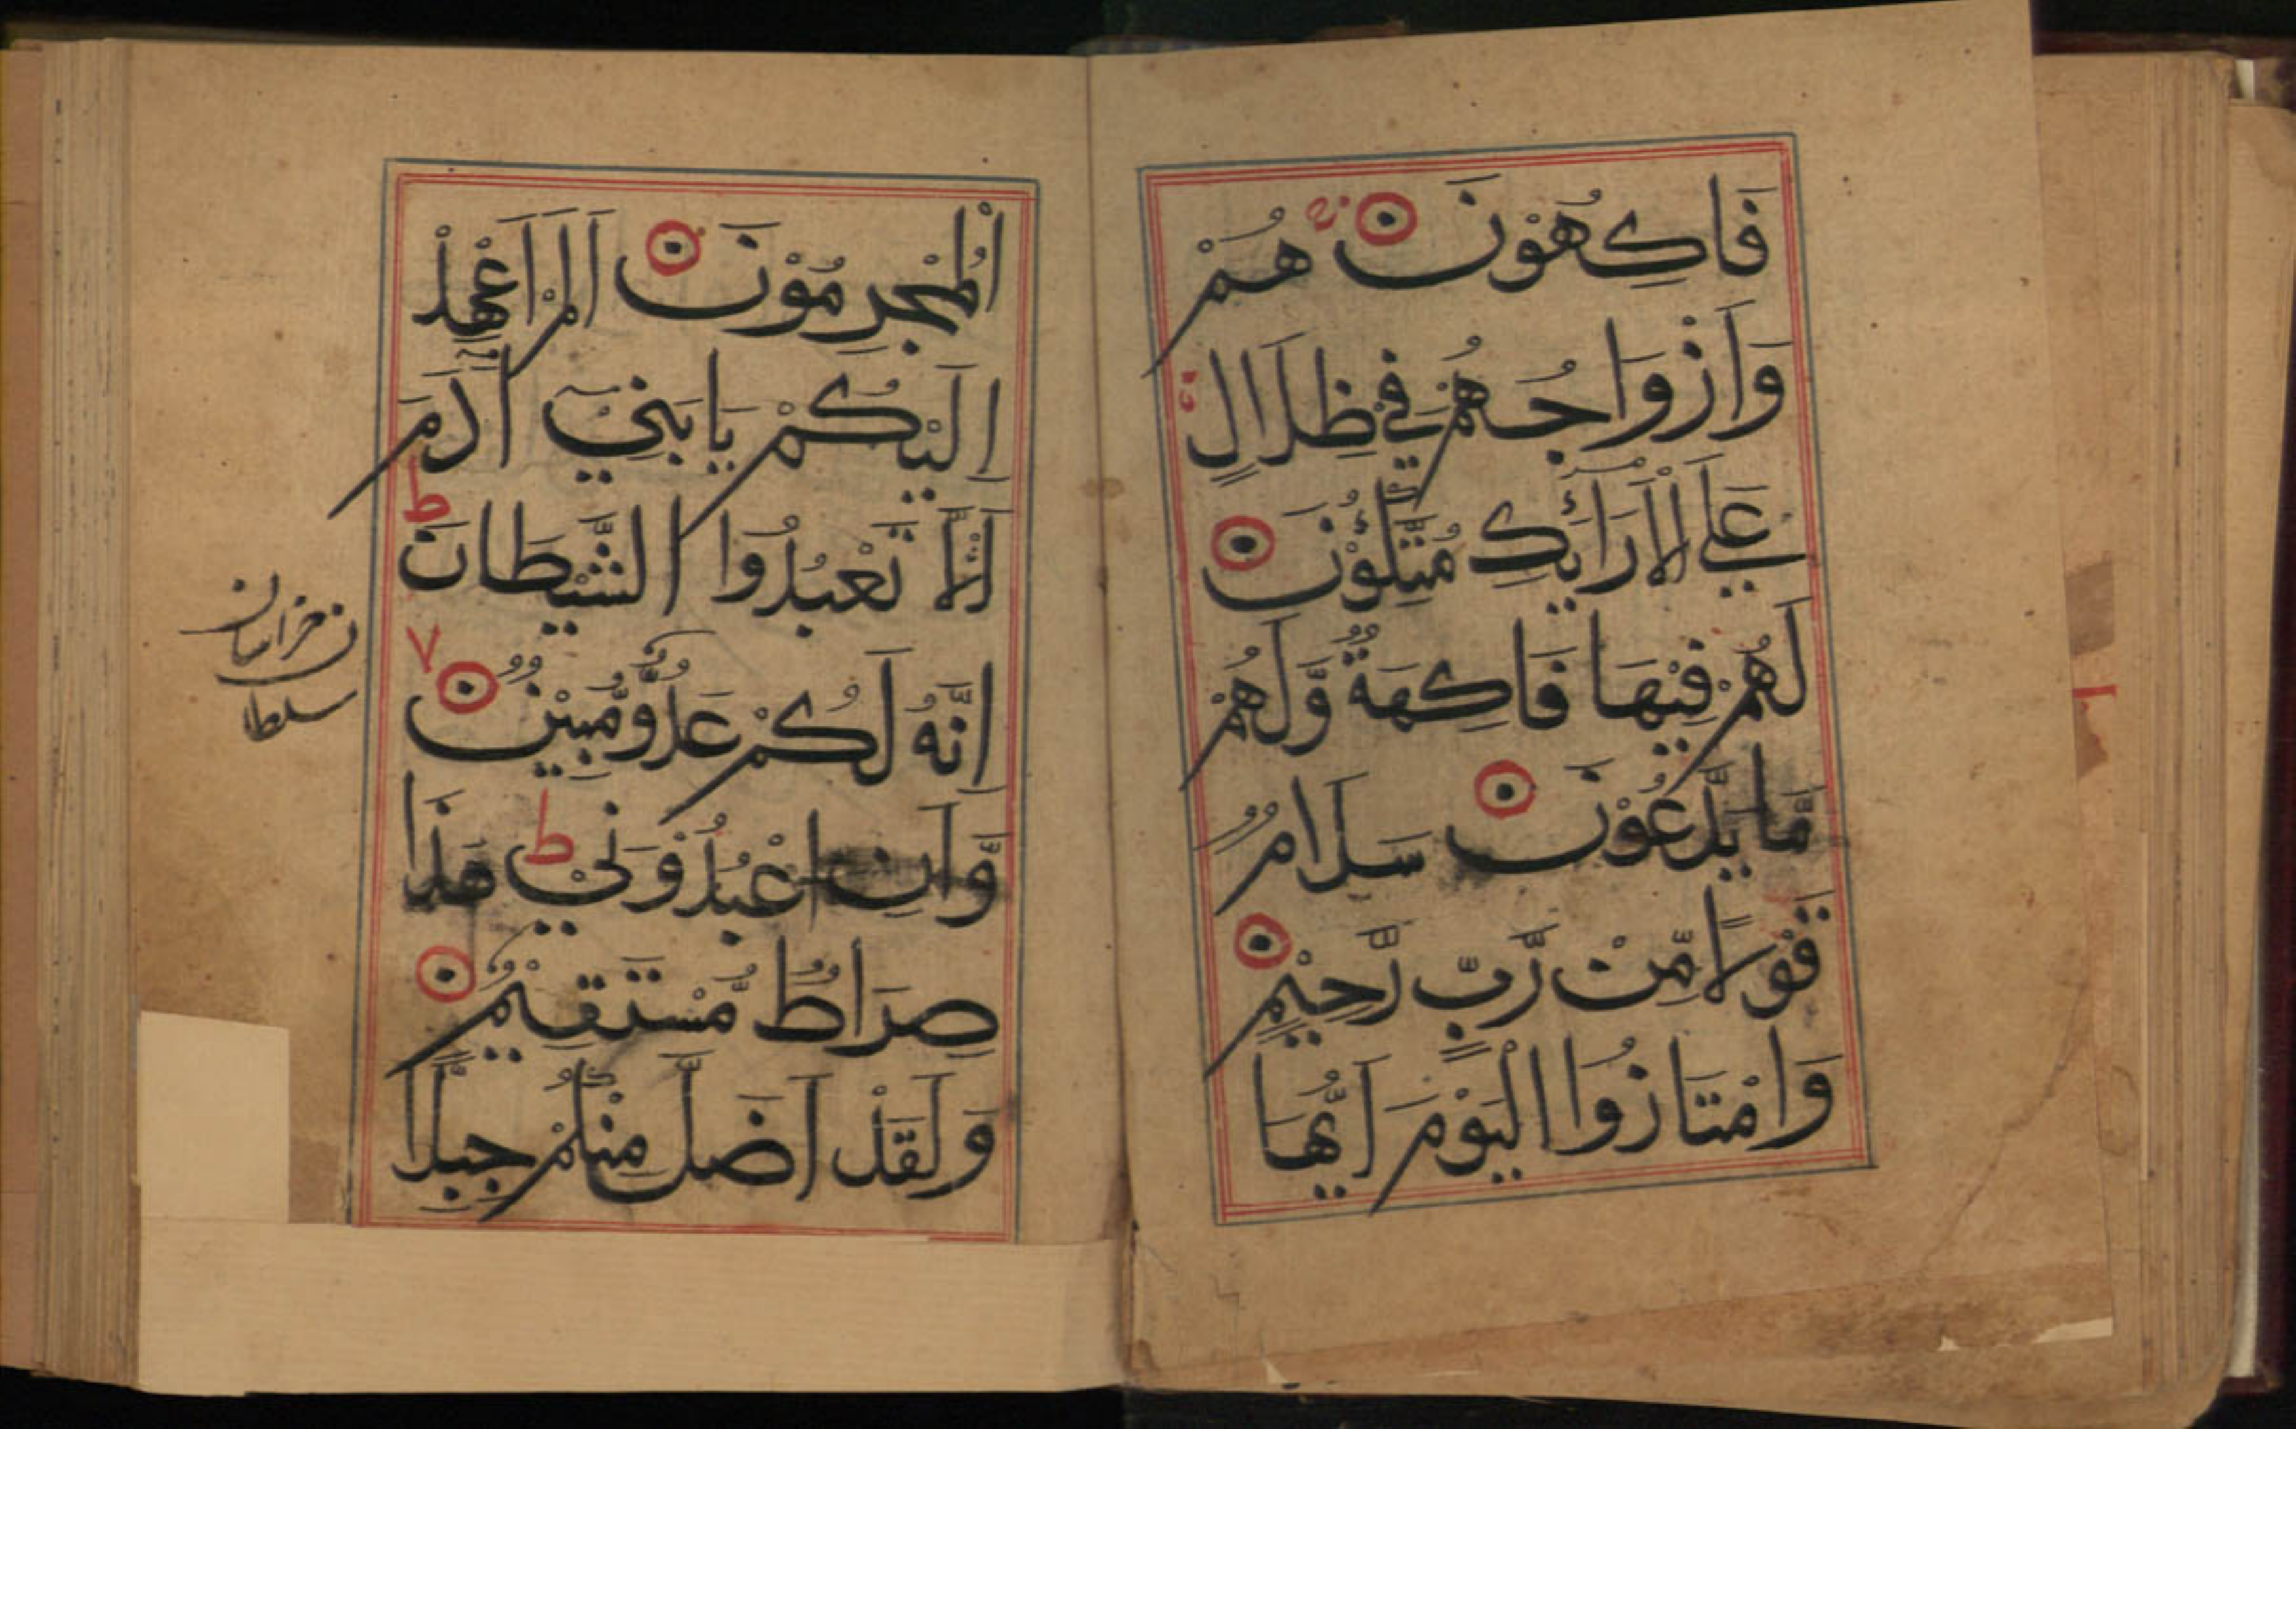 فَاكِهُوْنَ هُمْ
وَاَزْوَاجُهُمْ فِيْ ظِلَالٍ
عَلَى الْاَرَآئِكِ مُتَّكِئُوْنَ
لَهُمْ فِيْهَا فَاكِهَةٌ وَّلَهُمْ
مَّا يَدَّعُوْنَ سَلَامٌ
قَوْلًا مِّنْ رَّبٍّ رَّحِيْمٍ
وَامْتَازُوا الْيَوْمَ اَيُّهَا
الْمُجْرِمُوْنَ اَلَمْ اَعْهَدْ
اِلَيْكُمْ يَا بَنِيْٓ اٰدَمَ
اَنْ لَّا تَعْبُدُوا الشَّيْطَانَ ط
اِنَّهُ لَكُمْ عَدُوٌّ مُّبِيْنٌ ٧
وَّاَنِ اعْبُدُوْنِيْ ط هَذَا
صِرَاطٌ مُّسْتَقِيْمٌ
وَلَقَدْ اَضَلَّ مِنْكُمْ جِبِلًّا